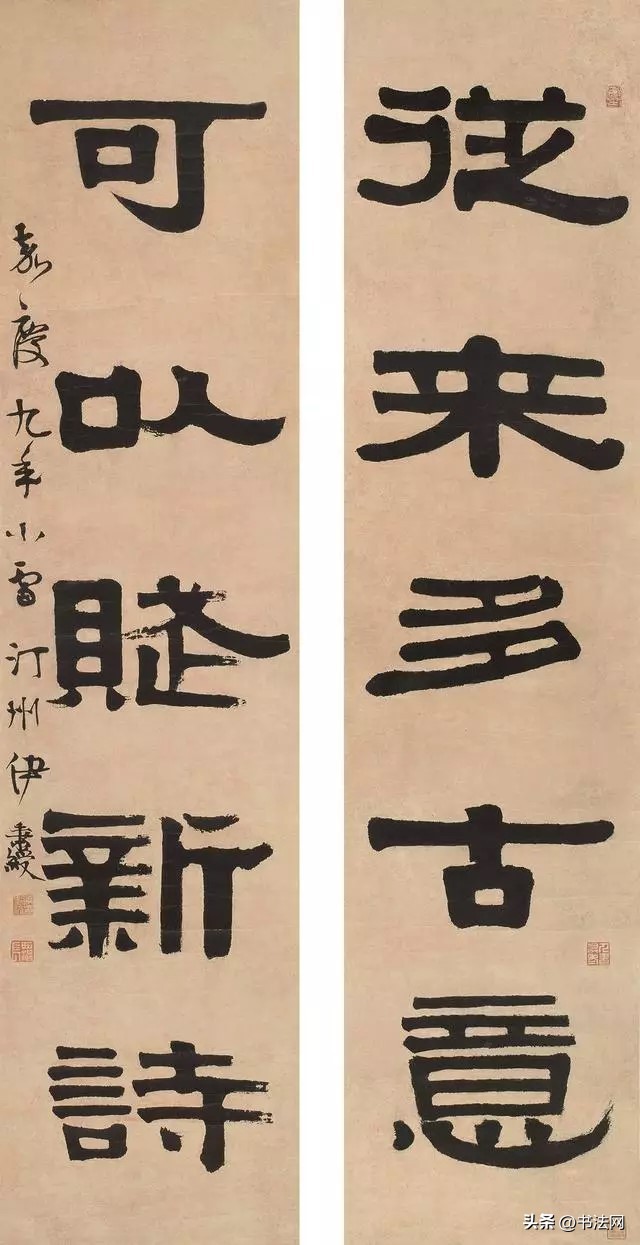 從来多古意
可以賦新詩
嘉慶九年小雪汀州伊秉綬
头条 @书法网